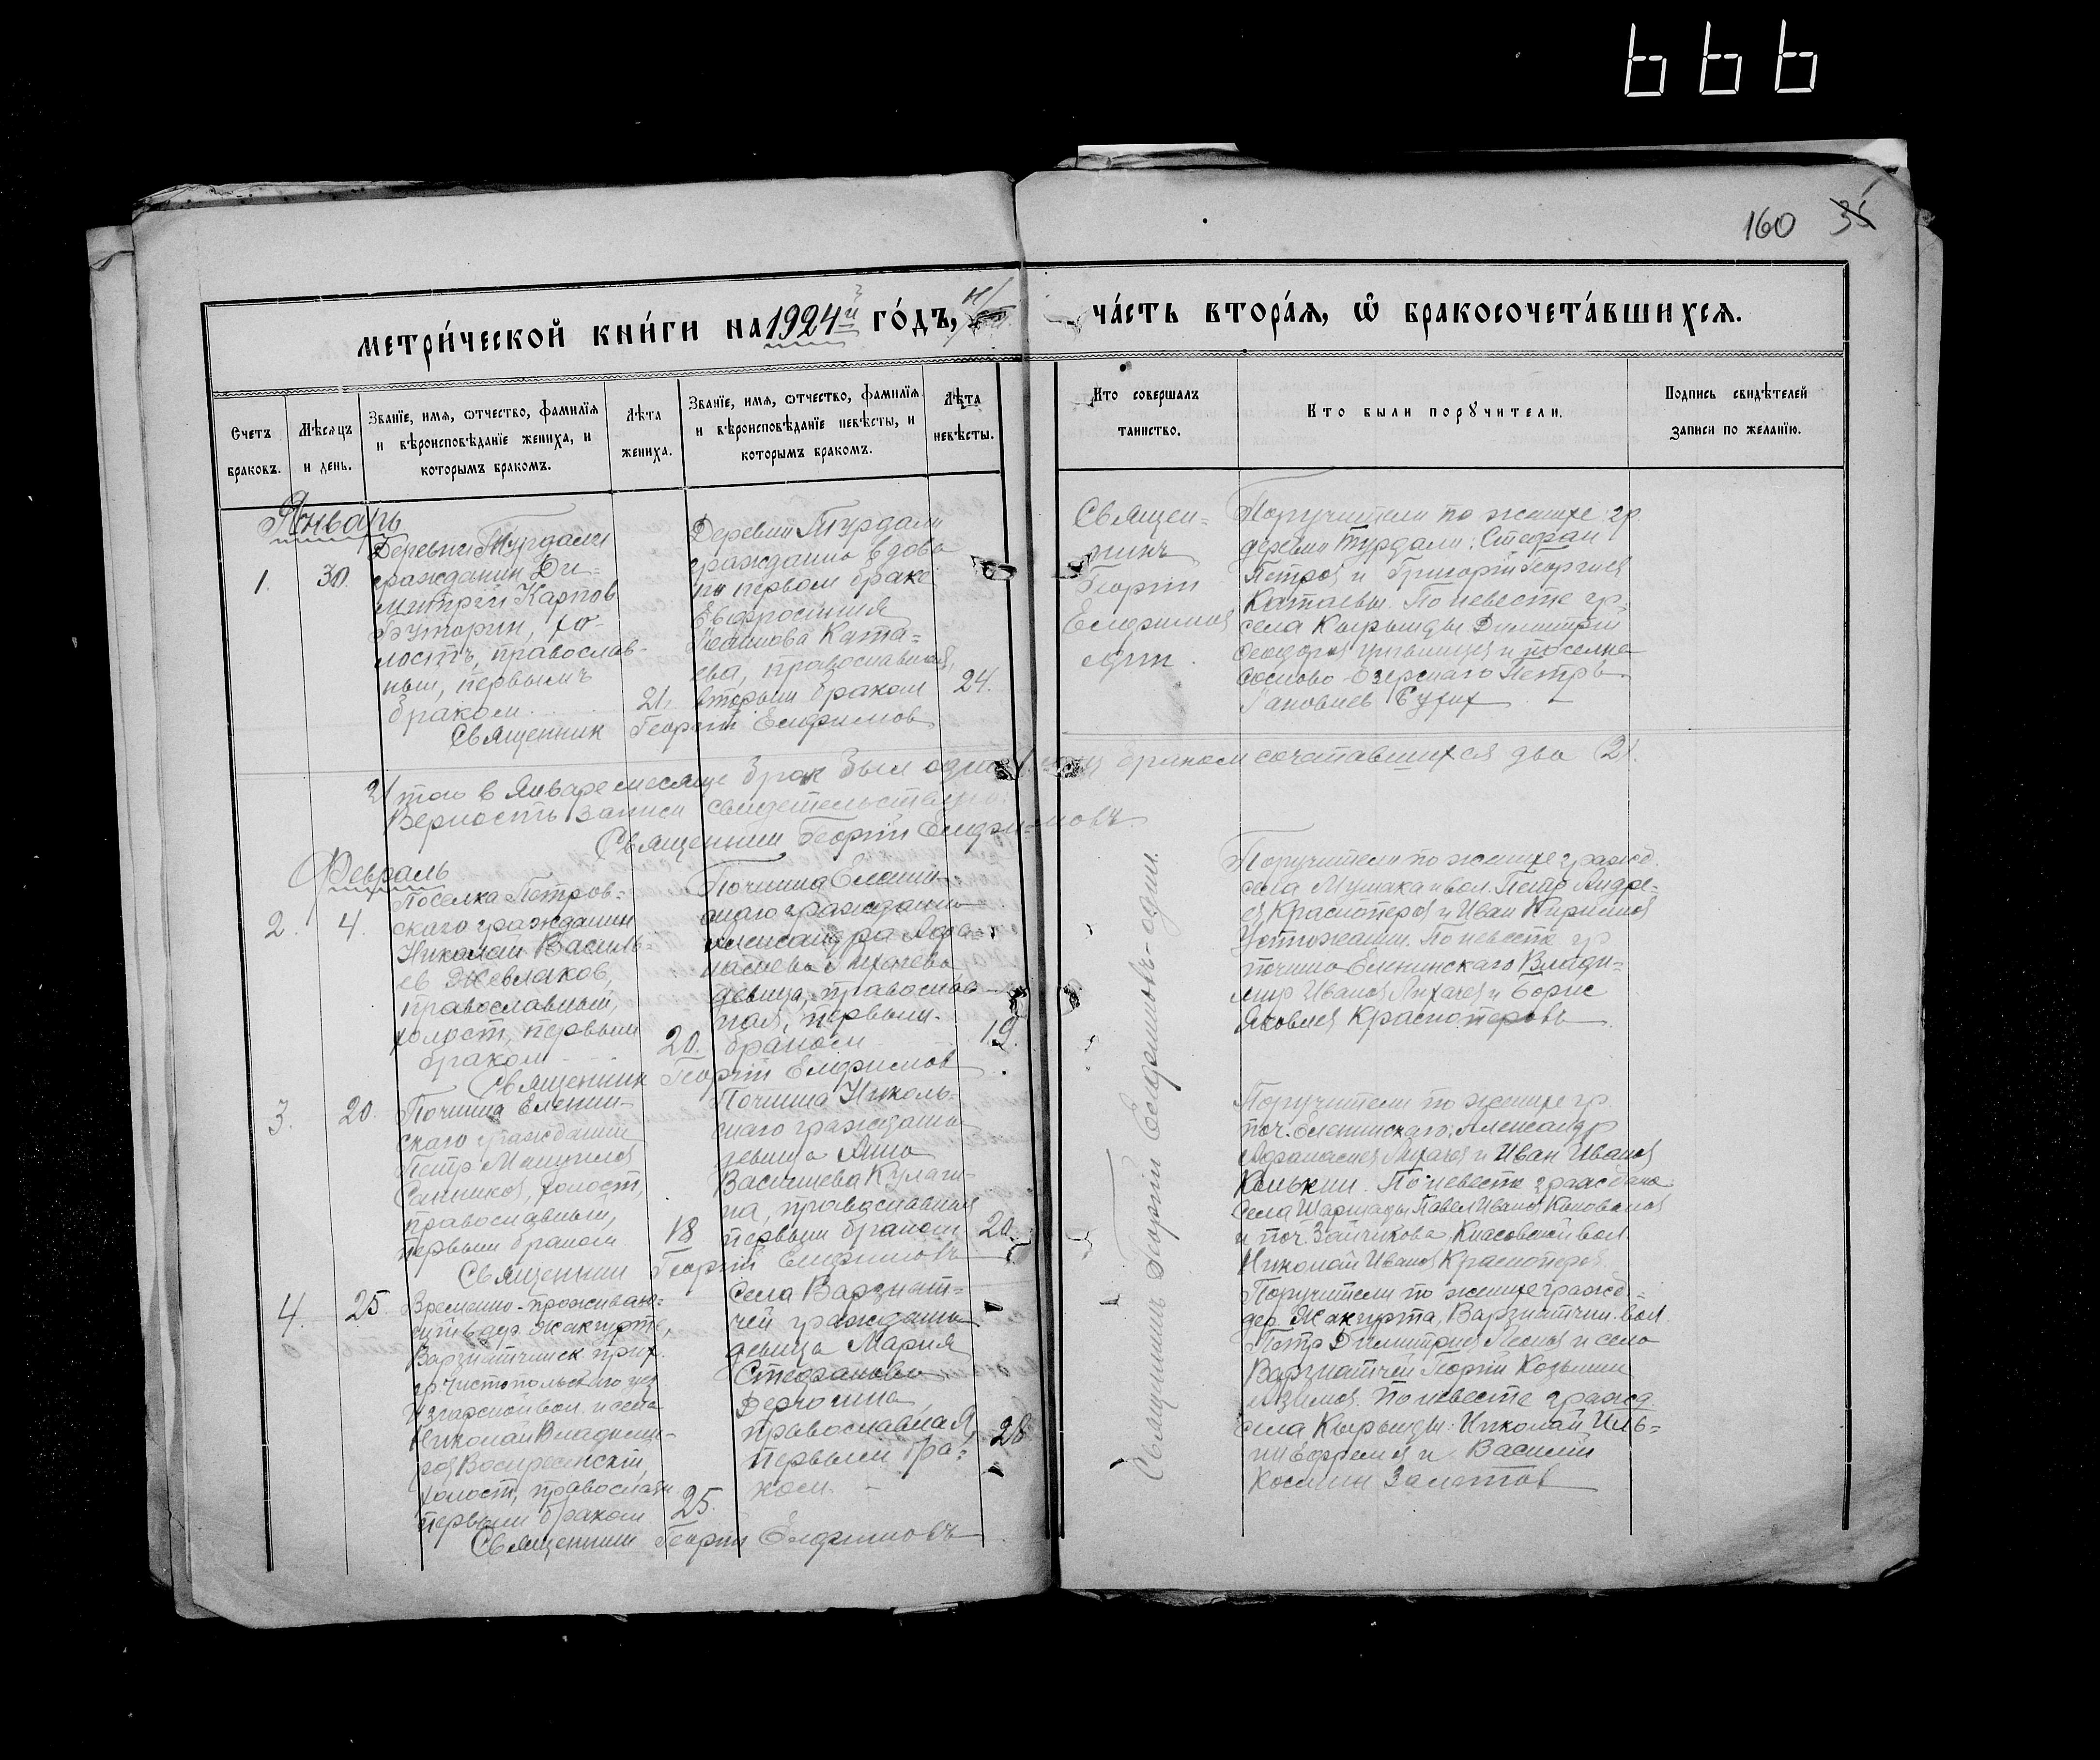 160 35
метри́ческой кни́ги на 1924й го́дъ,
ча́сть втора́я, ѡ҆ бракосочета́вшихся.
Счетъ браковъ.
Мѣсяцъ и день.
Званїе, имя, ѿтчество, фамилїя
и вѣроисповѣданїе жениха, и
которымъ бракомъ.
Лѣта жениха.
Званїе, имя, ѿтчество, фамилїя
и вѣроисповѣданїе невѣсты, и
которымъ бракомъ.
Лѣта невѣсты.
Кто совершалъ
таинство.
Кто были порꙋчители.
Подпись свидѣтелей
записи по желанїю.
Январь
1. 30.
Деревни Турдали
гражданин Ди-
митрий Карпов
Буторин, хо-
лостъ, православ-
ный, первымъ
браком
21.
Деревни Турдали
гражданка вдова
по первом браке
Евфросиния
Ката-
ева, православная,
вторым браком
24.
Священник Георгий Елифимов
Священ-
никъ
Георгий
Елифимов
один.
Поручители по женихе гр.
деревни Турдали: Стефан
Петров и Григорий Георгиев
Катаевы. По невесте гр.
села Кырынды Димитрий
Феодоров и поселка
Сосново-Озерскаго Петръ
Яковлев
Итого в Январе месяце брак был один 1. браком сочетавшихся два (2).
Верность записи свидетельствую:
Священник Георгий Елифимовъ
Февраль
2. 4.
Поселка Петров-
скаго гражданин
Николай Василь-
ев Жевлаков,
православный,
холост, первым
браком
20.
Починка Еленин-
скаго гражданка
Александра Афа-
насиева Лихачева
девица, православ-
ная, первым
браком
19.
Священник Георгий Елифимов
Поручители по женихе гражд.
села Мушака вол. Петр Андре-
ев Красноперов и Иван Кирилов
Устюжанин. По невесте гр
починка Еленинскаго Влади-
мир Иванов Лихачев и Борис
Яковлев Красноперовъ
3. 20.
Починка Еленин-
скаго гражданин
Петр
Санников, холост,
православный,
первым браком
18
Починка Николь-
скаго гражданка
девица Анна
Василиева Кулаги-
на, православная
первым браком
20.
Священник Георгий Елифимовъ
Поручители по женихе гр.
поч. Еленинскаго: Александр
Афанасиев Лихачев и Иван Иванов
Конькин. По невесте граждане
села Шаршады Павел Иванов
и поч. Зайчикова, вол.
Николай Иванов Красноперов.
4. 25.
Временно-проживаю-
щий в дер. Жакгурте,
Варзиятчинск. прих.
гр Чистопольскаго уез
вол. и села
Николай Владими-
ров Воскресенский,
холост, православн.
первым браком
25.
Села Варзият-
чей гражданка
девица Мария
Стефанова
православная
первым бра-
ком
28
Священник Георгий Елифимовъ
Священникъ Георгий Елифимовъ-один.
Поручители по женихе гражд.
дер. Жакгурта, Варзиятчин. вол.
Петр Димитриев Леонов и села
Варзиятчей Георгий Козьмин
По невесте гражд.
села Кырынды: Николай Иль-
ин Ефремов и Василий
Космин Залетов